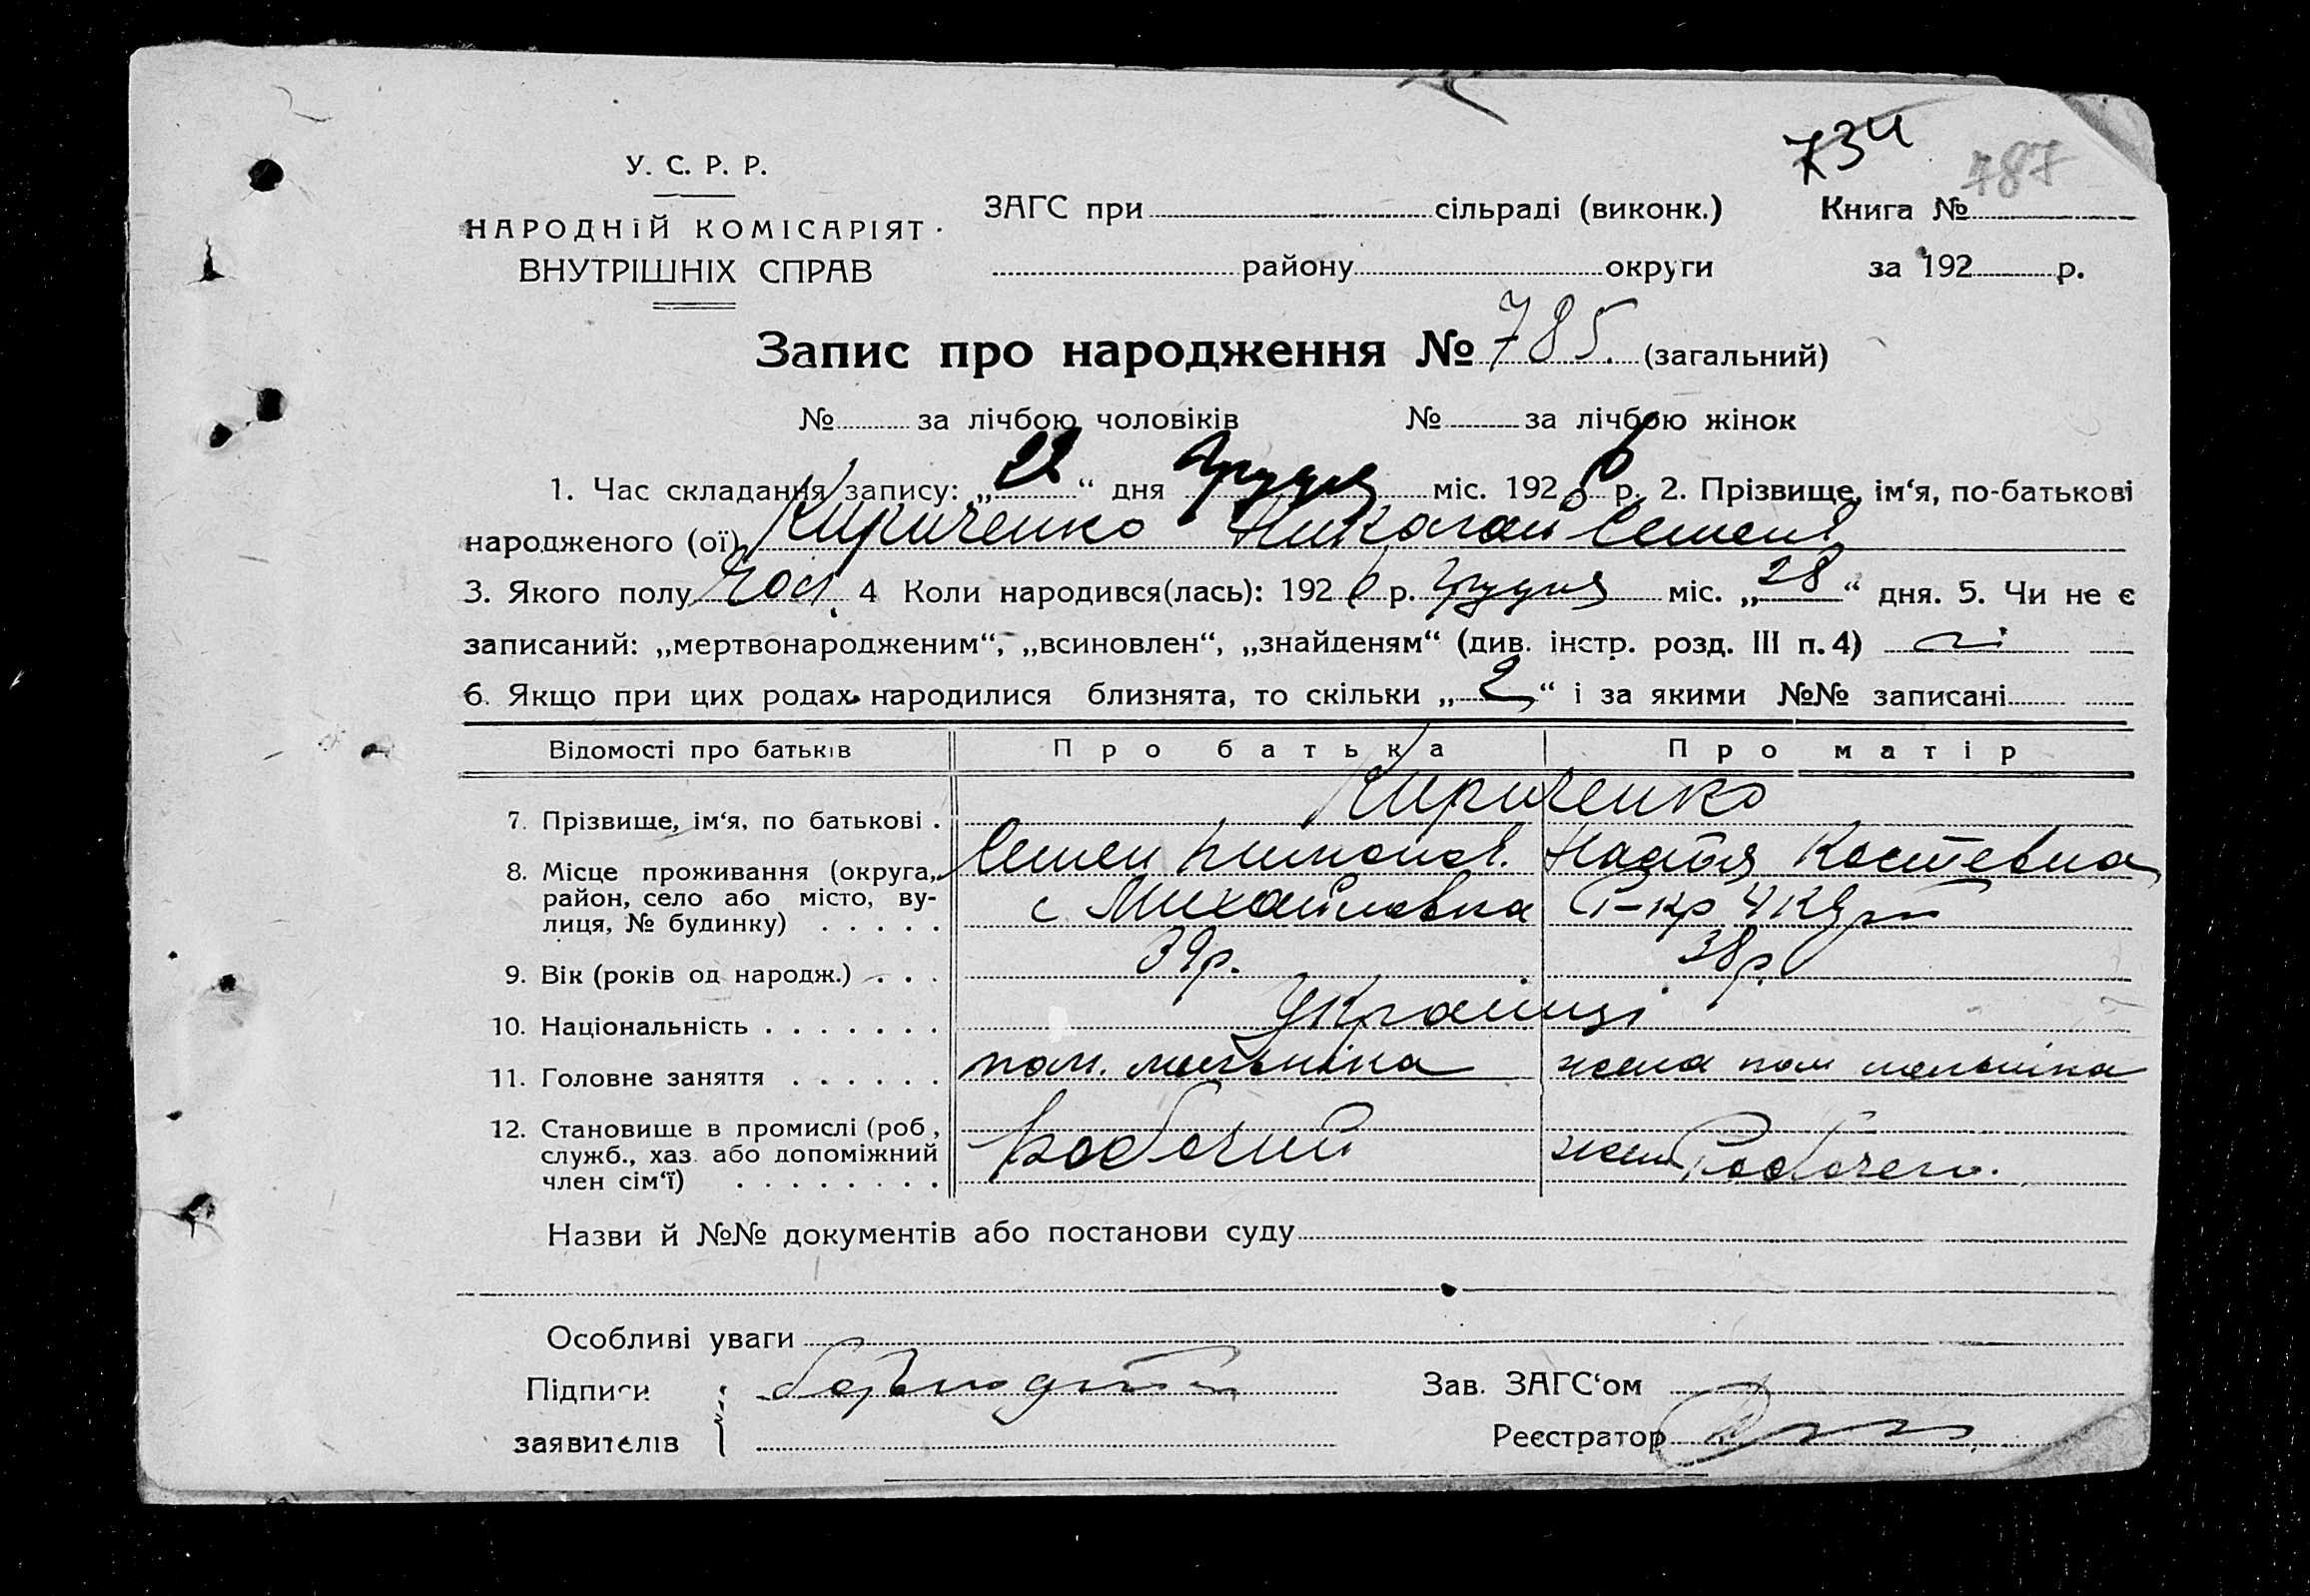 734
787
У. С. Р. Р.
НАРОДНІЙ КОМІСАРІЯТ
ВНУТРІШНІХ СПРАВ
ЗАГС при сільраді (виконк.) Книга №
району округи за 192 р.
Запис про народження № 785. (загальний)
№ за лічбою чоловіків № за лічбою жінок
1. Час складання запису: „ “ дня Грудня міс. 1926 р. 2. Прізвище, ім‘я, по-батькові
народженого (ої) Кириченко Николай Семен
3. Якого полу Чол. 4 Коли народився(лась): 1926 р. грудня міс. „28“ дня. 5. Чи не є
записаний: „мертвонародженим“, „всиновлен“, „знайденям“ (див. інстр. розд. III п. 4)
6. Якщо при цих родах народилися близнята, то скільки „2“ і за якими №№ записані
Відомості про батьків Про батька Про матір
7. Прізвище, ім‘я, по батькові . Кириченко
Семен Настя Костевна
8. Місце проживання (округа, район, село або місто, вулиця, № будинку) . . . . . с. Михайловка
9. Вік (років од народж.) . . . 39р. 38р.
10. Національність . . . . . . . Українці
11. Головне заняття . . . . . . пом. мельніка жена пом мельніка
12. Становище в промислі (роб., служб., хаз. або допоміжний член сім‘ї) . . . . . . . . Рабочий жена Рабочего.
Назви й №№ документів або постанови суду
Особливі уваги
Підписи Зав. ЗАГС‘ом
заявителів Реєстратор